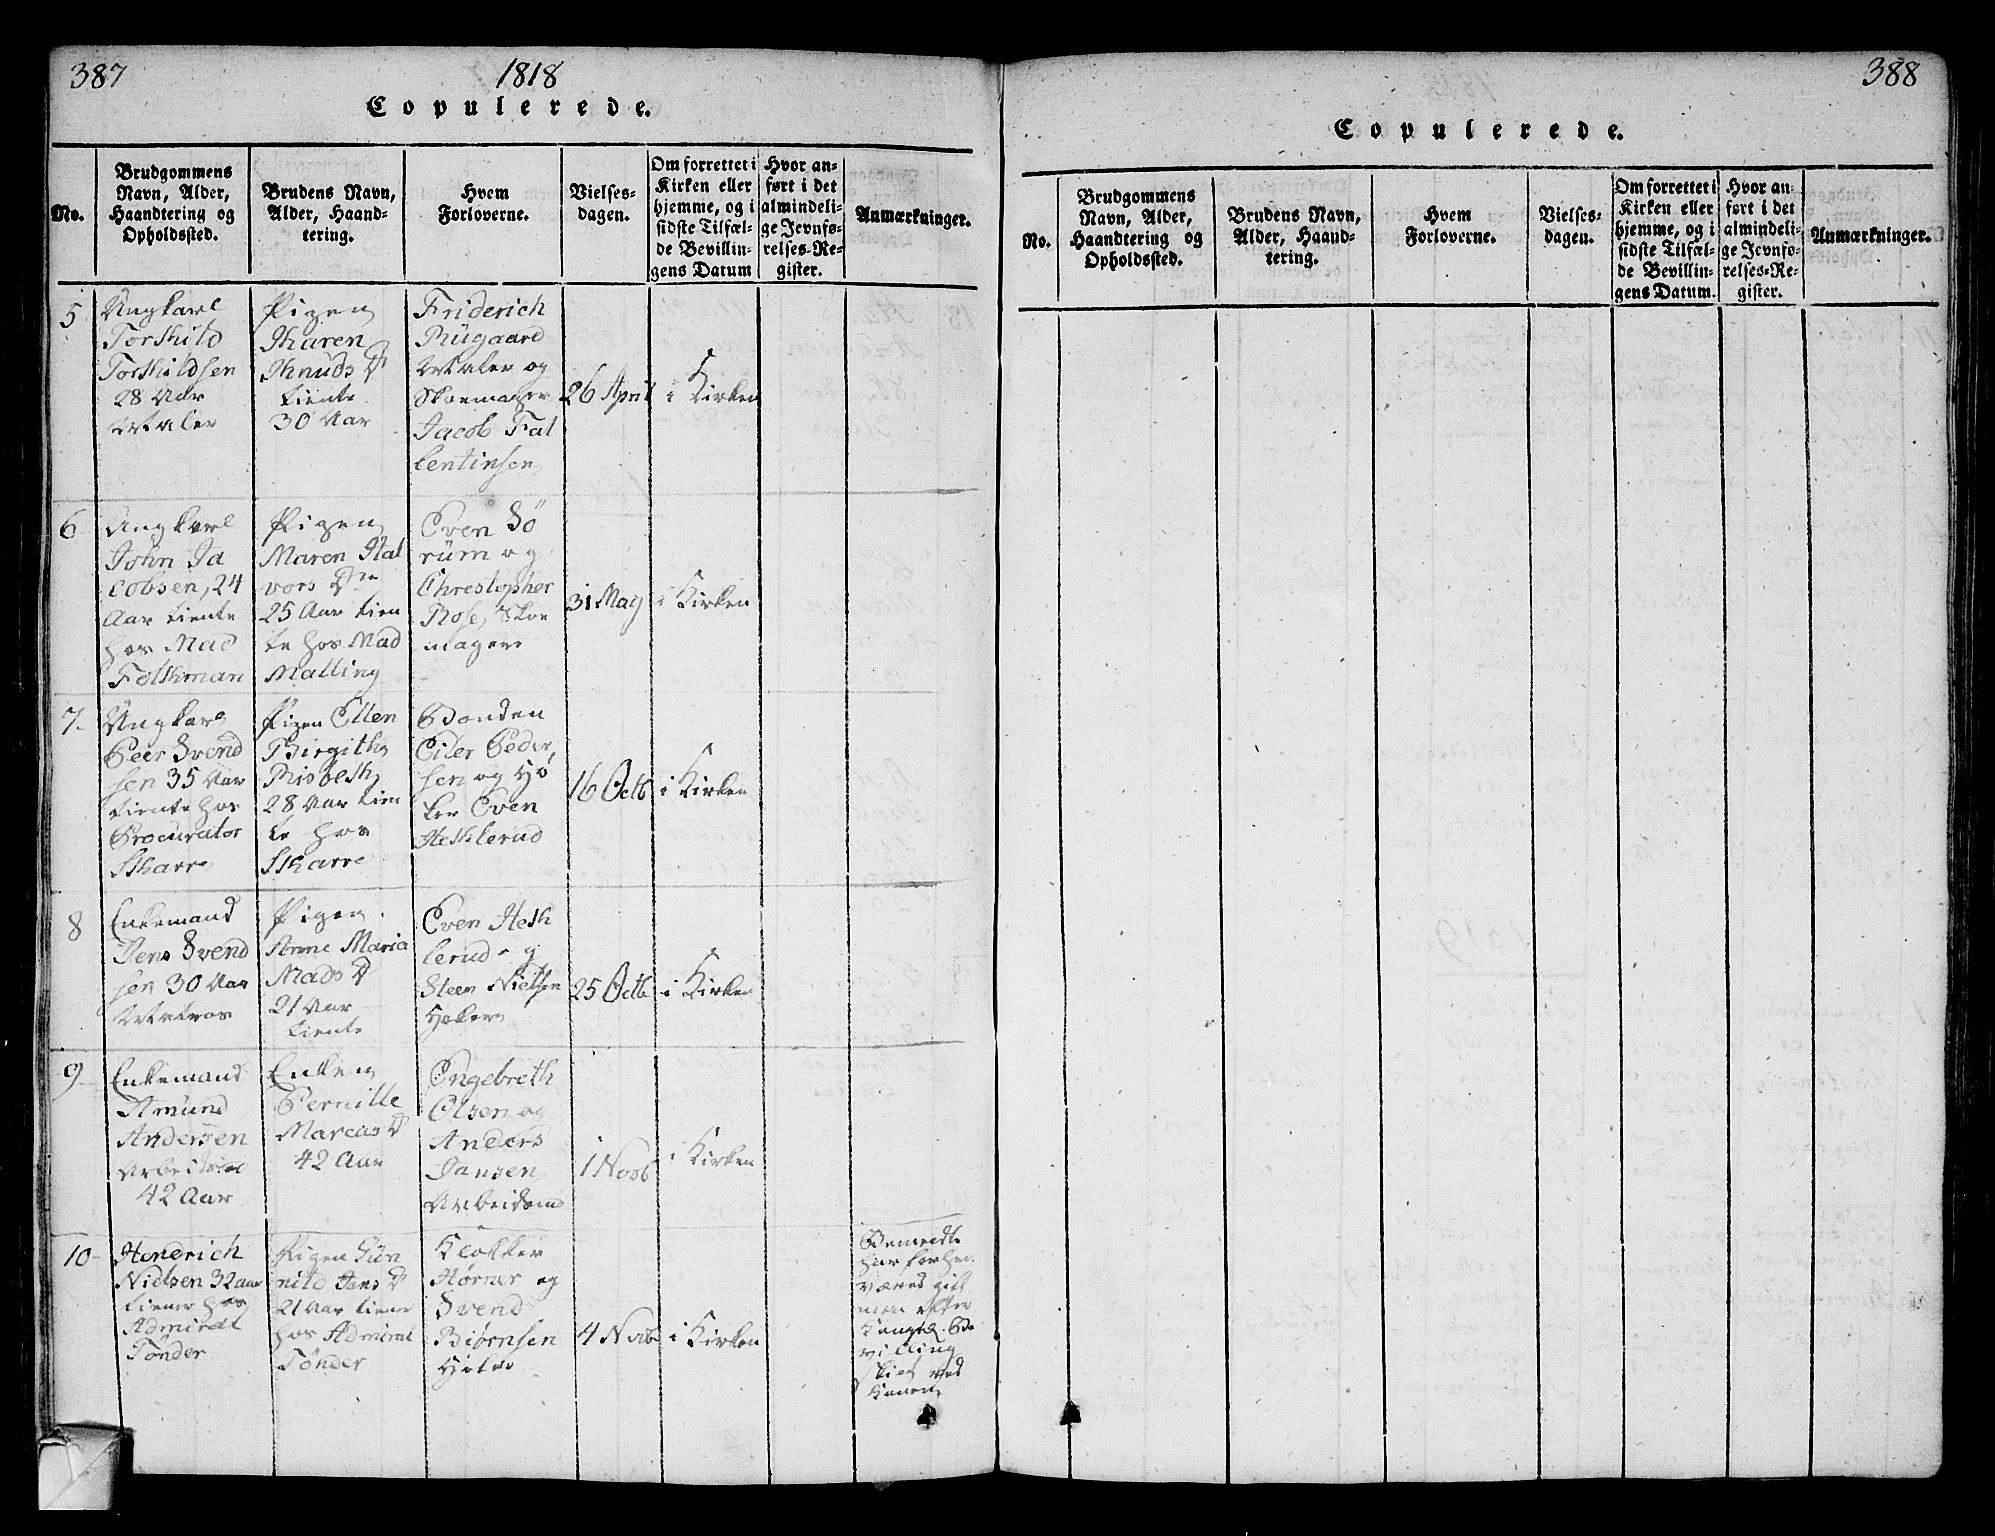 387
1818
Copulerede.
No.
Brudgommens
Navn, Alder,
Haandtering og
Opholdssted.
Brudens Navn,
Alder, Haand-
tering.
Hvem
Forloverne.
Vielses-
dagen.
Om forrettet i
Kirken eller
hjemme, og i
sidste Tilfæl-
de Bevillin-
gens Datum
Hvor an-
ført i det
almindeli-
ge Jevnfø-
relses-Re-
gister.
Anmærkninger.
5
Ungkarl
Torkild
Torkildsen
28 Aar
Maler
Pigen
Karen
Knuds D
tiente
30 Aar
Friderich
Rügaard
Maler og
Skoemager
Jacob Fal
lentinsen
26 April
i Kirken
6
Ungkarl
John Ja
cobsen, 24
Aar tiente
hos Mad
Folkman
Pigen
Maren Hal
vors D
25 Aar tien
te hos Mad
Malling
Even Sö
rüm og
Christopher
Rose, Skoe
magere
31 May
i Kirken
7.
Ungkarl
Peer Svend
sen 35 Aar
tiente hos
Procurator
Skarre
Pigen Ellen
Birgith
Risbeth
28 Aar tien
te hos
Skarre
Bonden
Eiler Peder
sen og Hø
ker Even
Heklerud
16 Octb
i Kirken
8
Enkemand
Jens Svend
sen 30 Aar
Matros
Pigen
Anne Maria
Mads D
21 Aar
tiente
Even Hek
lerud og
Steen Nielsen
Høkere
25 Octb
i Kirken
9
Enkemand
Amund
Andersen
Arbeidsmd
42 Aar
Enken
Pernille
Marcus D
42 Aar
Engebreth
Olsen og
Anders
Jansen
Arbeidsmd
1 Novb
i Kirken
10
Henderich
Nielsen 32 aar
tiener hos
Admiral
Tønder
Pigen Gün
nild Jens D
21 Aar tiener
hos Admiral
Tønder
Klokker
Hørner og
Svend
Biørnsen
Høker
4 Novb
i Kirken
Bemeldte
har forhen
været gift
men efter
Kongel. Be
villing
skiet ved
Konen
388
Copulerede.
No.
Brudgommens
Navn, Alder,
Haandtering og
Opholdssted.
Brudens Navn,
Alder, Haand-
tering.
Hvem
Forloverne.
Vielses-
dagen.
Om forrettet i
Kirken eller
hjemme, og i
sidste Tilfæl-
de Bevillin-
gens Datum.
Hvor an-
ført i det
almindeli-
ge Jevnfo-
relses-Re-
gister.
Anmærkninger.